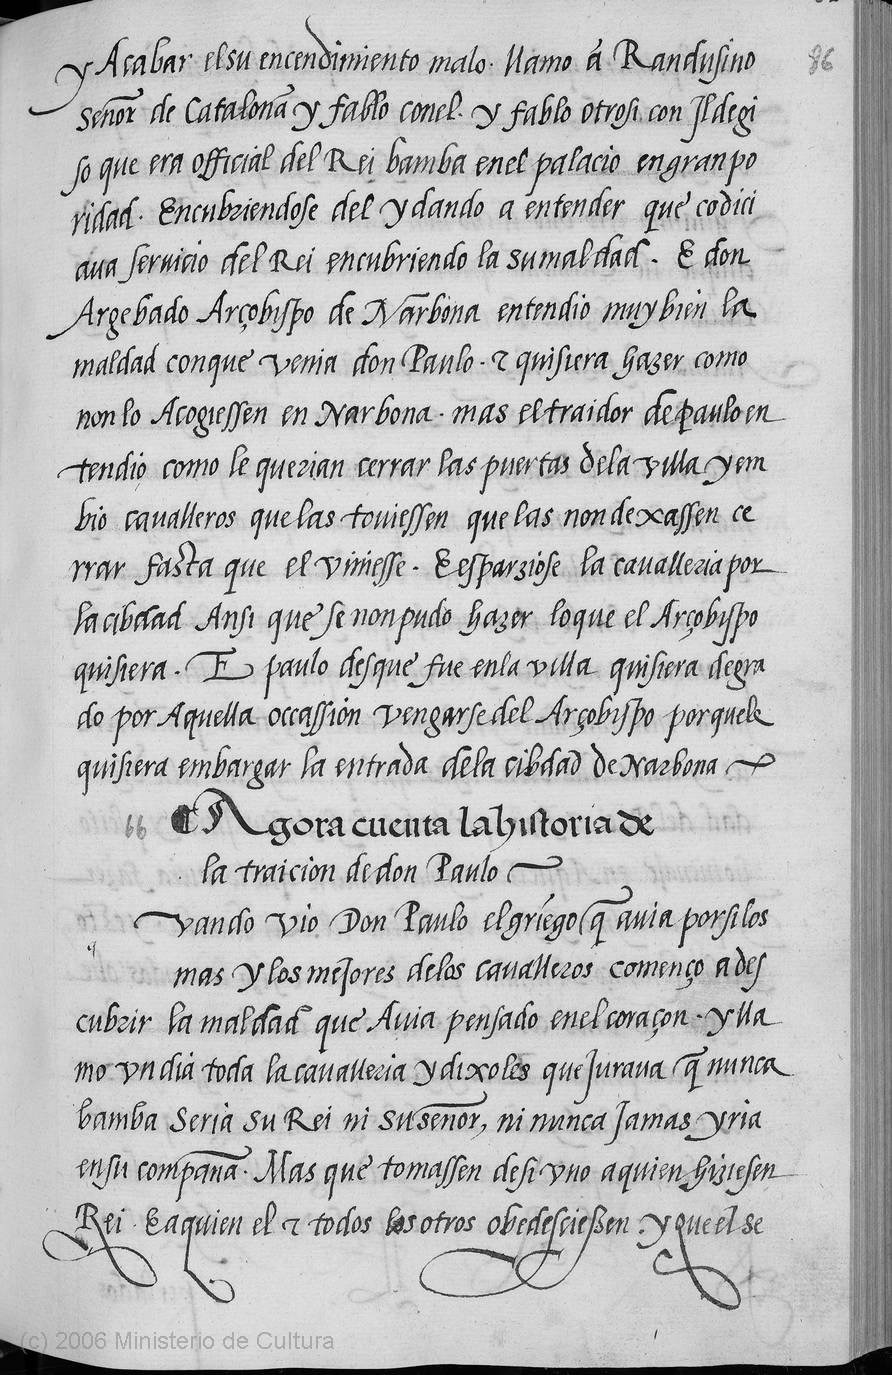 86
y Acabar el su encendimiento malo. llamo á Randusino
señor de Cataloña y fablo conel. y fablo otrosi con Ildegi
so que era official del Rei bamba enel palacio engranpo
ridad. Encubriendose del y dando a entender que codici
aua seruicio del Rei encubriendo la su maldad. E don
Argebado Arçobispo de Narbona entendio muy bien la
maldad conque venia don Paulo. ⁊ quisiera hazer como
non lo Acogiessen en Narbona. mas el traidor de paulo en
tendio como le querian cerrar las puertas dela villa y em
bio caualleros que las touiessen que las non dexassen ce
rrar fasta que el viniesse. E esparziose la caualleria por
la cibdad Ansi que se non pudo hazer lo que el Arçobispo
quisiera. E paulo desque fue enla villa quisiera degra
do por Aquella occassion vengarse del Arçobispo porquele
quisiera embargar la entrada dela cibdad de Narbona
66 Agora cuenta la historia de
la traicion de don Paulo
q
vando vio Don Paulo el griego q̃ auia por si los
mas y los mejores delos caualleros començo a des
cubrir la maldad que Auia pensado enel coraçon. y lla
mo vn dia toda la caualleria y dixoles que Juraua q̃ nunca
bamba seria su Rei ni su señor, ni nunca Jamas yria
en su compaña. Mas que tomassen desi vno a quien hiziesen
Rei. E a quien el ⁊ todos los otros obedesciessen. y que el se
(c) 2006 Ministerio de Cultura